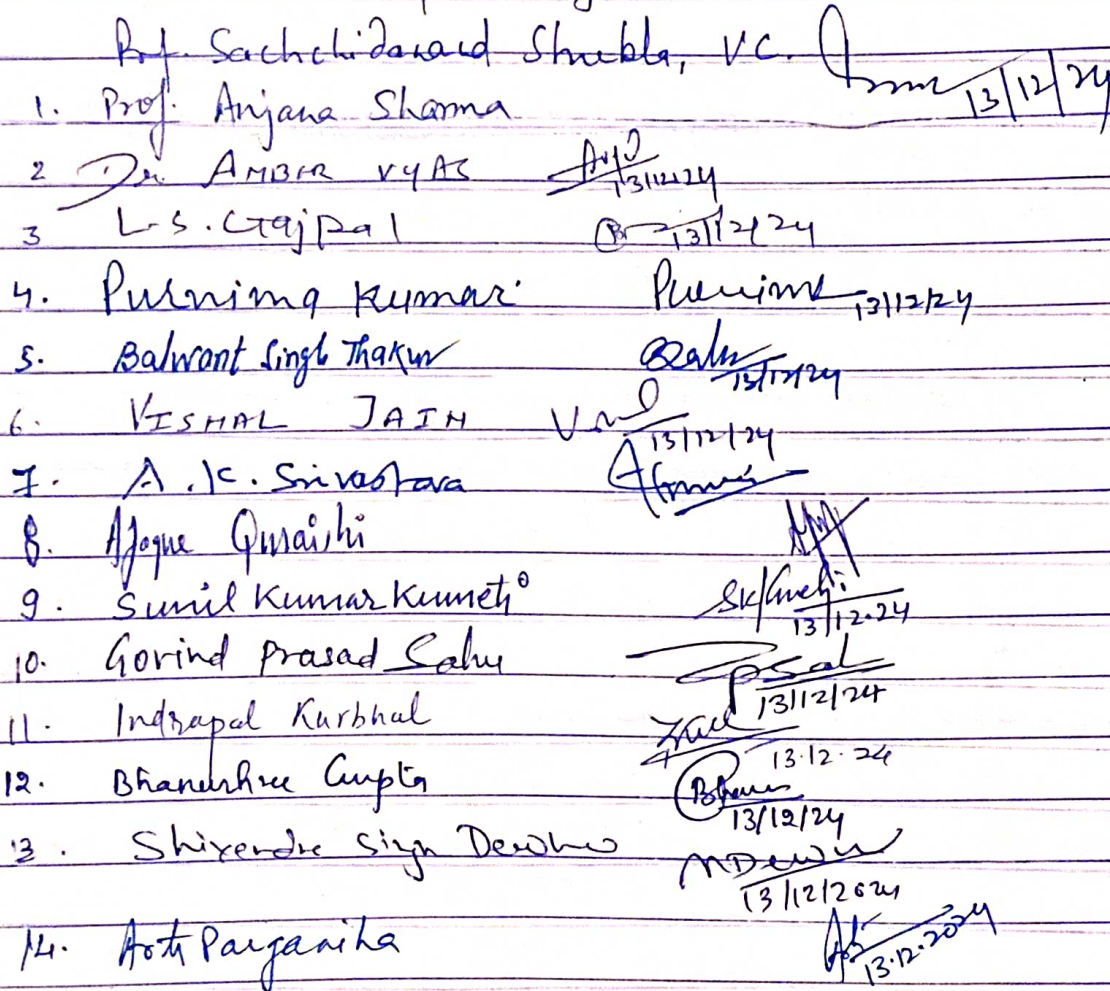 Prof. Sachchidanand Shukla, V.C. 13/12/24
1. Prof. Anjana Sharma
2 Dr AMBER VYAS 13/12/24
3 L.S. Gajpal 13/12/24
4. Purnima Kumar Purnima 13/12/24
5. Balwant Singh Thakur 13/12/24
6. VISHAL JAIN 13/12/24
7. A.K. Srivastava
8. Afaque Quraishi
9. Sunil Kumar Kumeti 13/12.24
10. Govind Prasad Sahu 13/12/24
11. Indrapal Karbhal 13.12.24
12. Bhanushree Gupta 13/12/24
13. Singh 13/12/2024
14. Arti Parganiha 13.12.2024